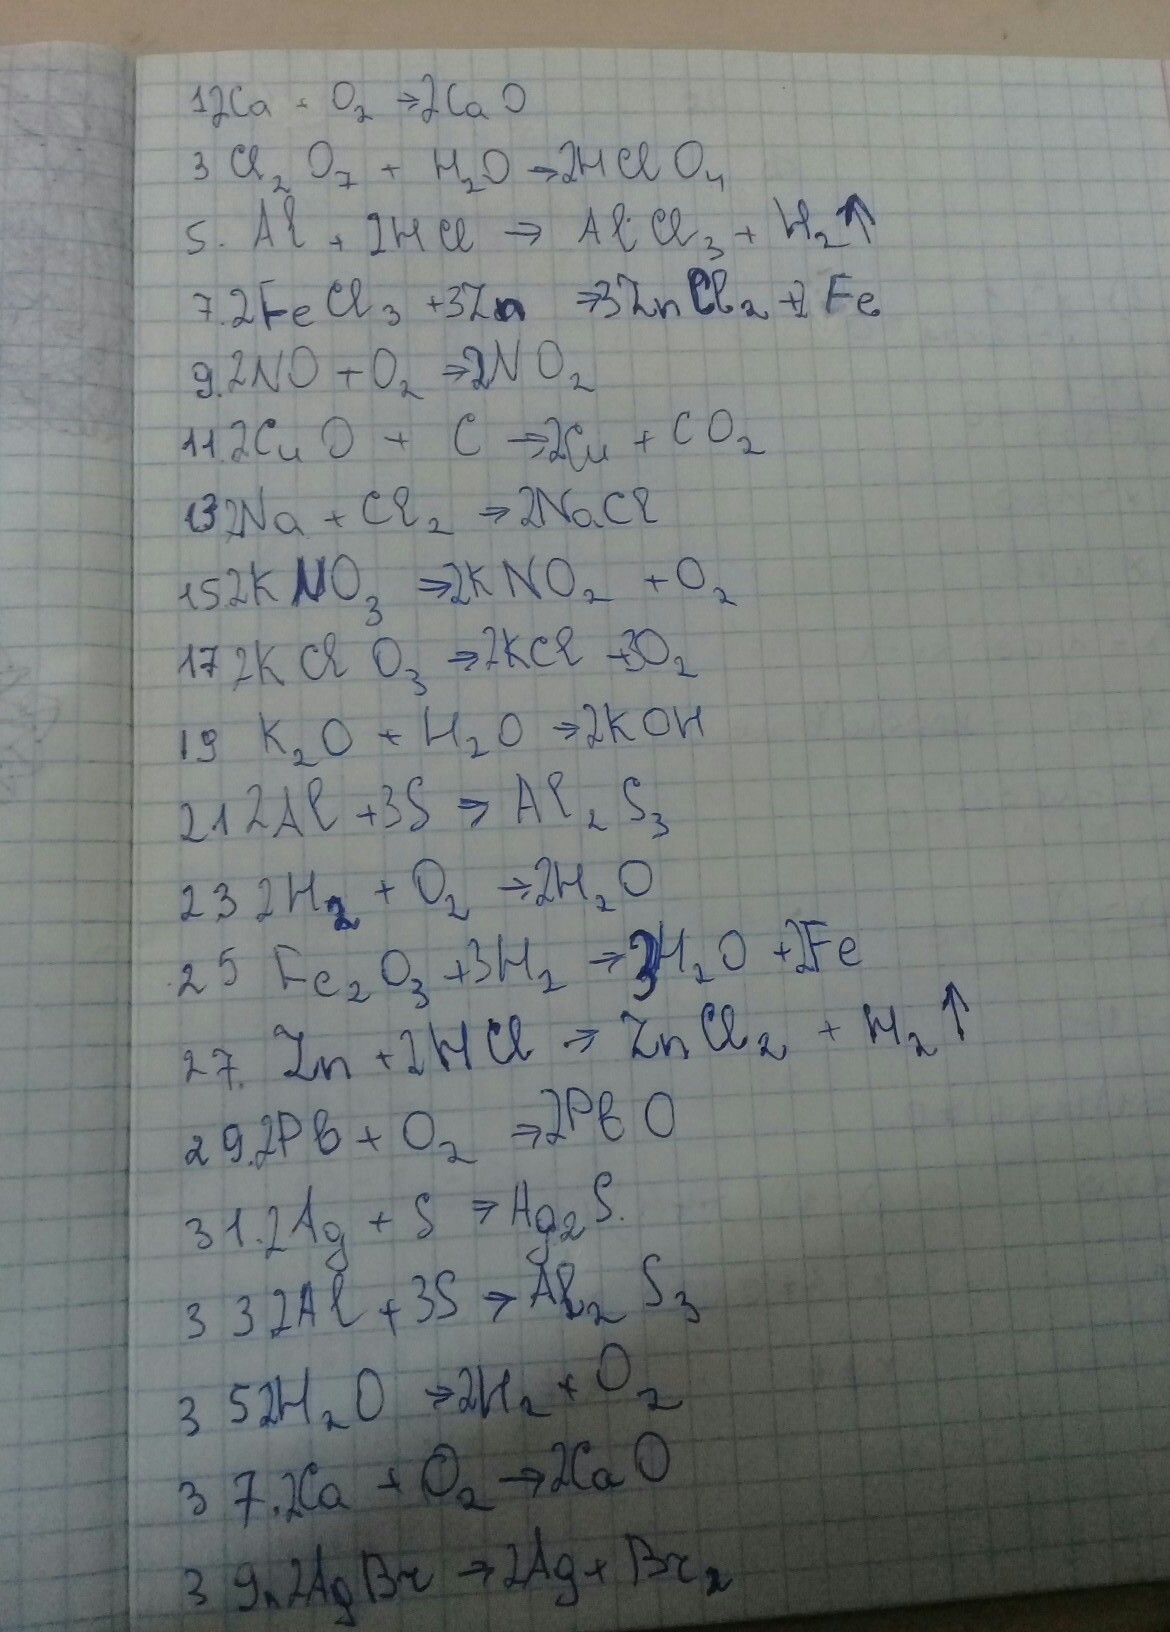 1 2Ca + O₂ → 2CaO
3 Cl₂O₇ + H₂O → 2HClO₄
5. Al + 2HCl → AlCl₃ + H₂↑
7. 2FeCl₃ + 3Zn → 3ZnCl₂ + 2Fe
9. 2NO + O₂ → 2NO₂
11. 2CuO + C → 2Cu + CO₂
13 2Na + Cl₂ → 2NaCl
15 2KNO₃ → 2KNO₂ + O₂
17 2KClO₃ → 2KCl + 3O₂
19 K₂O + H₂O → 2KOH
21 2Al + 3S → Al₂S₃
23 2H₂ + O₂ → 2H₂O
25 Fe₂O₃ + 3H₂ → 3H₂O + 2Fe
27. Zn + 2HCl → ZnCl₂ + H₂↑
29. 2Pb + O₂ → 2PbO
31. 2Ag + S → Ag₂S.
33 2Al + 3S → Al₂S₃
35 2H₂O → 2H₂ + O₂
37. 2Ca + O₂ → 2CaO
39. 2AgBr → 2Ag + Br₂